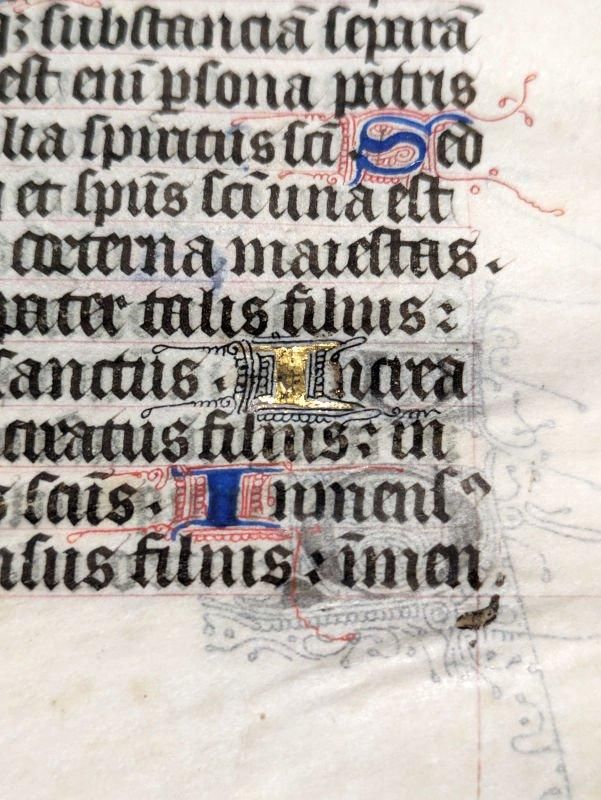 substanciā separā
est eni᷒ ꝑsona patris
lia spiritus scī. Sed
et spūs scī una est
coeterna maiestas.
pater talis filius:
sanctus. Increa
creatus filius: in
s scūs. Inmensꝰ
nsus filius: īmen.